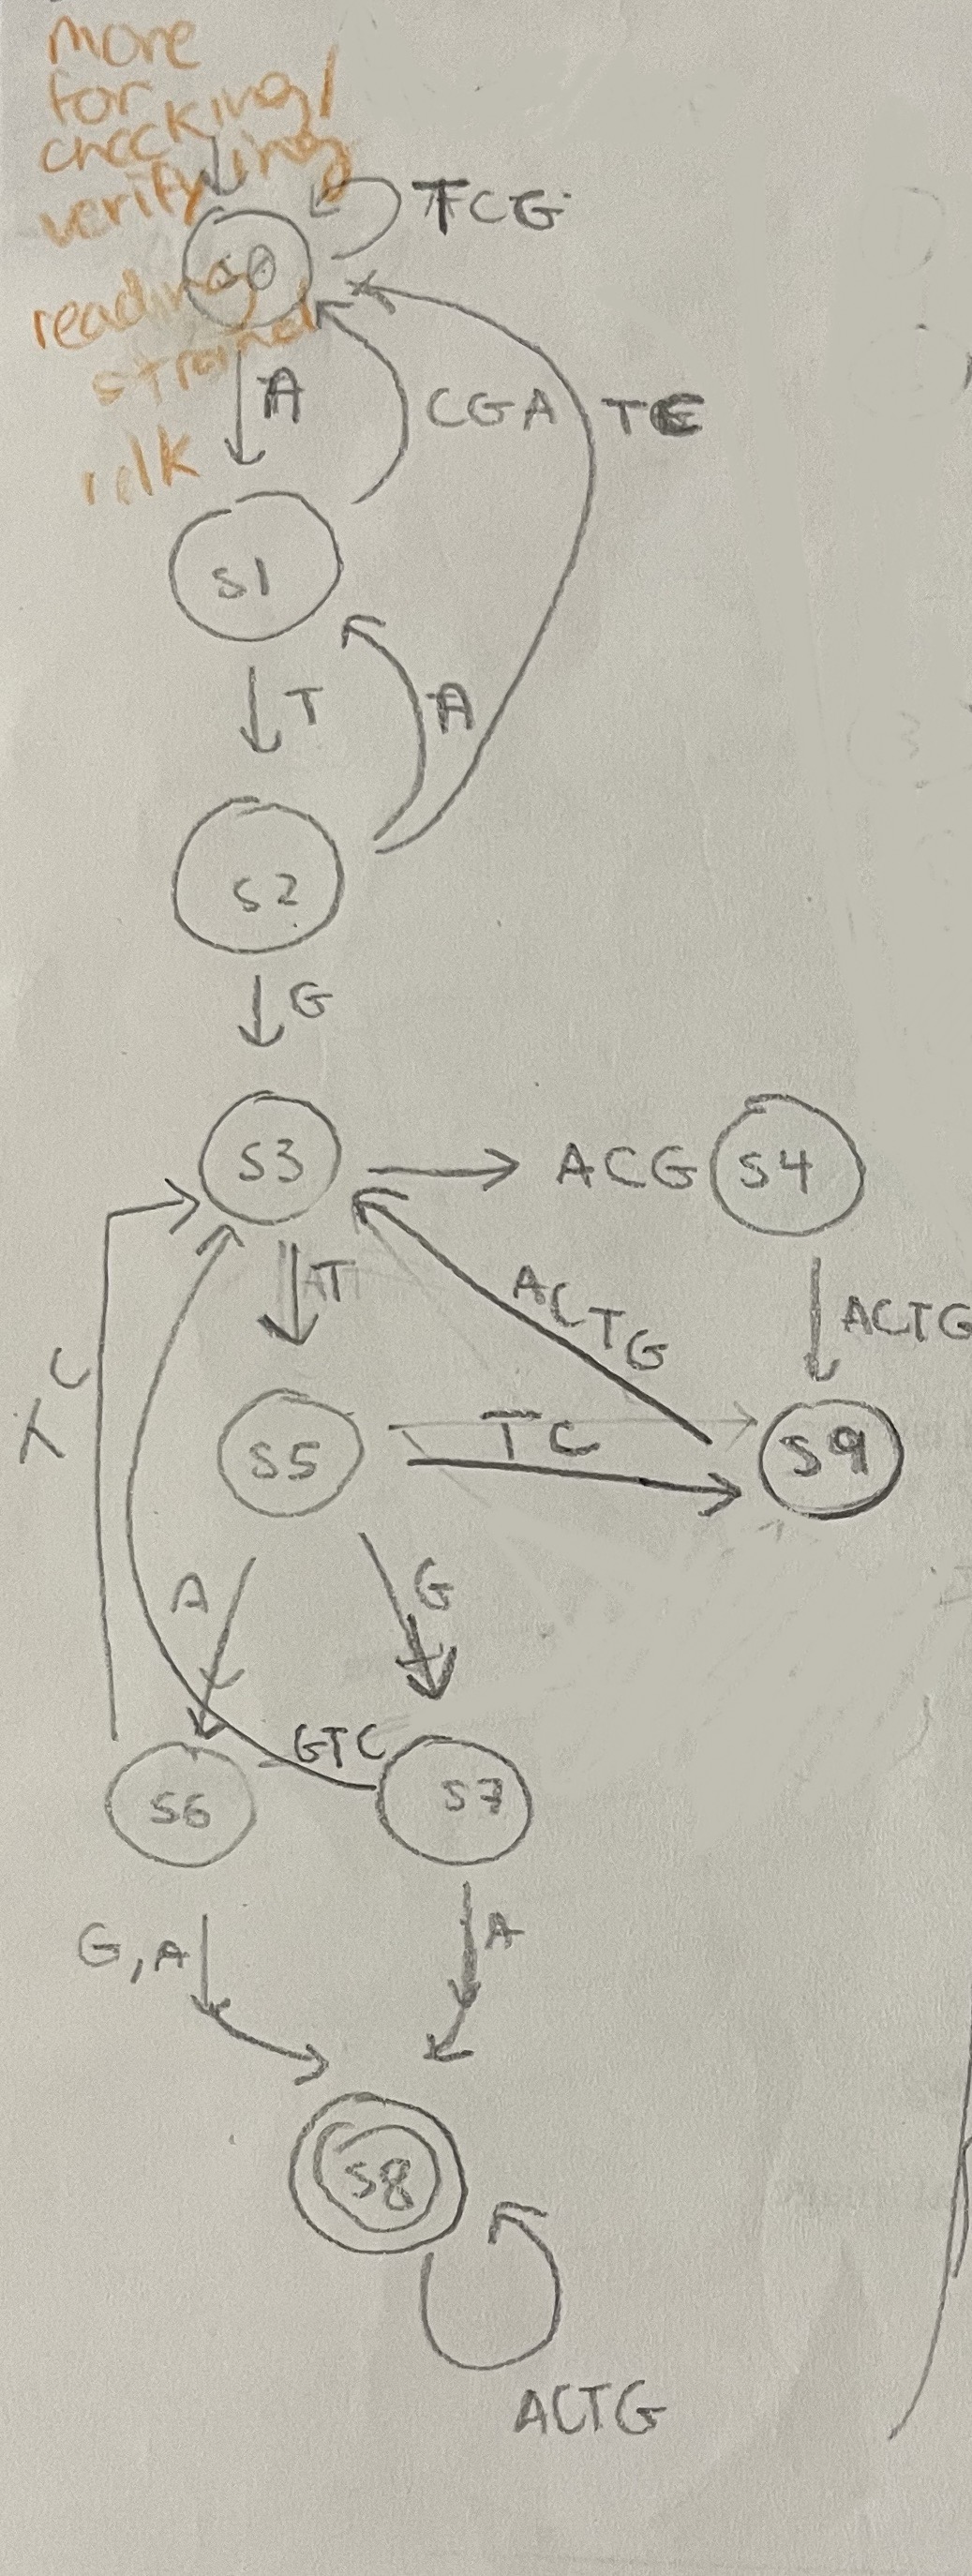 more
for
checking/
verifying
reading
strand
idk
TCG
S0
A
CGA
TC
S1
T
A
S2
G
S3
ACG
S4
T
ACTG
ACTG
C
T
S5
TC
S9
A
G
GTC
S6
S7
G,A
A
S8
ACTG